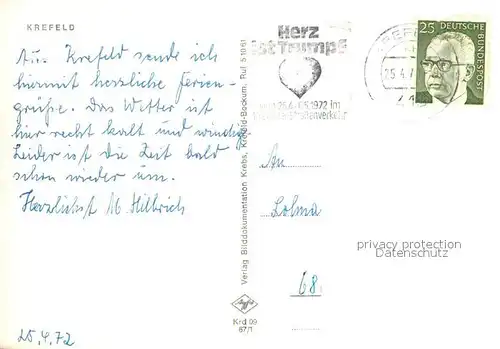 KREFELD
Aus Krefeld sende ich
hiermit herzliche Ferien-
grüße. Das Wetter ist
hier recht kalt und windig
Leider ist die Zeit bald
schon wieder um.
Herzlichst M. Hilbrich
25.4.72
Verlag Bilddokumentation Krebs, Krefeld-Bockum, Ruf 5 10 61
Agfa
Krd 09
67/1
Herz
ist Trumpf
1972 im
25.4.7
25
DEUTSCHE
BUNDESPOST
An
Lolma
68
privacy protection
Datenschutz